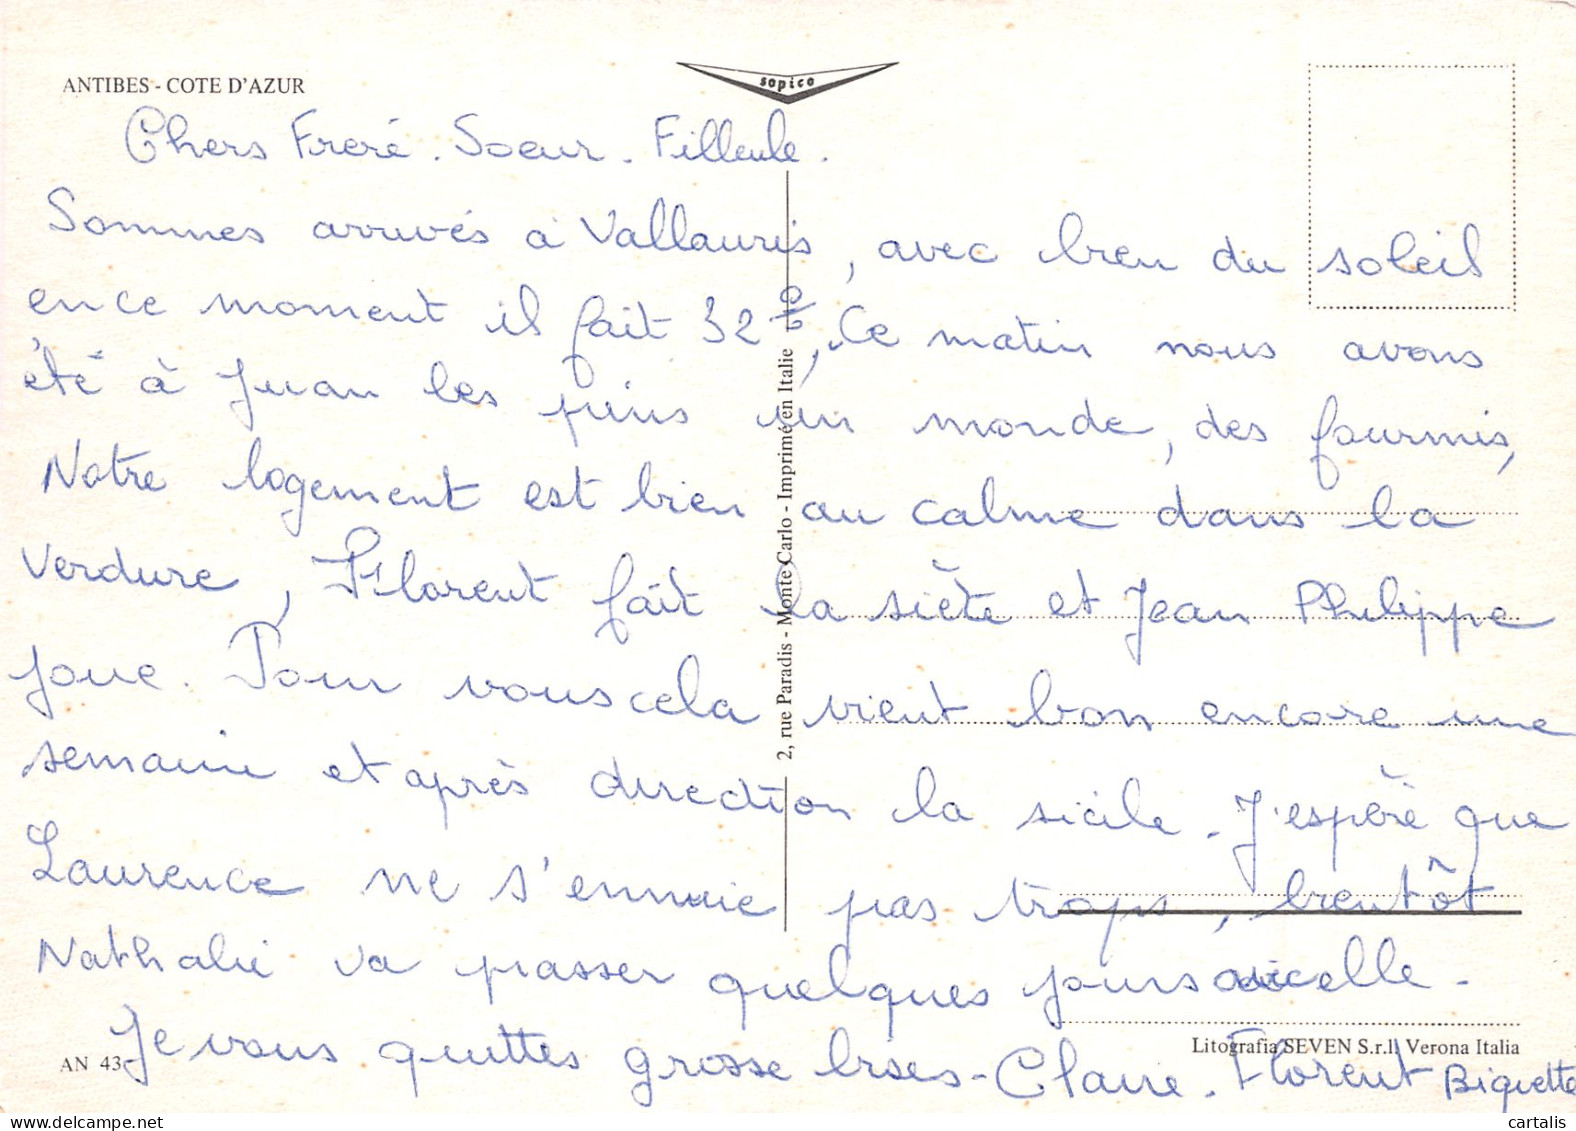 ANTIBES - COTE D'AZUR
sopico
Chers Freré. Soeur. Filleule.
Sommes arrivés à Vallauris, avec bien du soleil
en ce moment il fait 32%, Ce matin nous avons
été à Juan les pins un monde, des fourmis,
Notre logement est bien au calme dans la
verdure, Florent fait la siète et Jean Philippe
joue. Pour vous cela vient bon encore une
semaine et après direction la sicile. J'espère que
Laurence ne s'ennuie pas trops, bientôt
Nathalie va passer quelques jours avec elle.
Je vous quittes grosse bises - Claire. Florent Biquette
2, rue Paradis - Monte Carlo - Imprimé en Italie
AN 43
Litografia SEVEN S.r.l. Verona Italia
cartalis